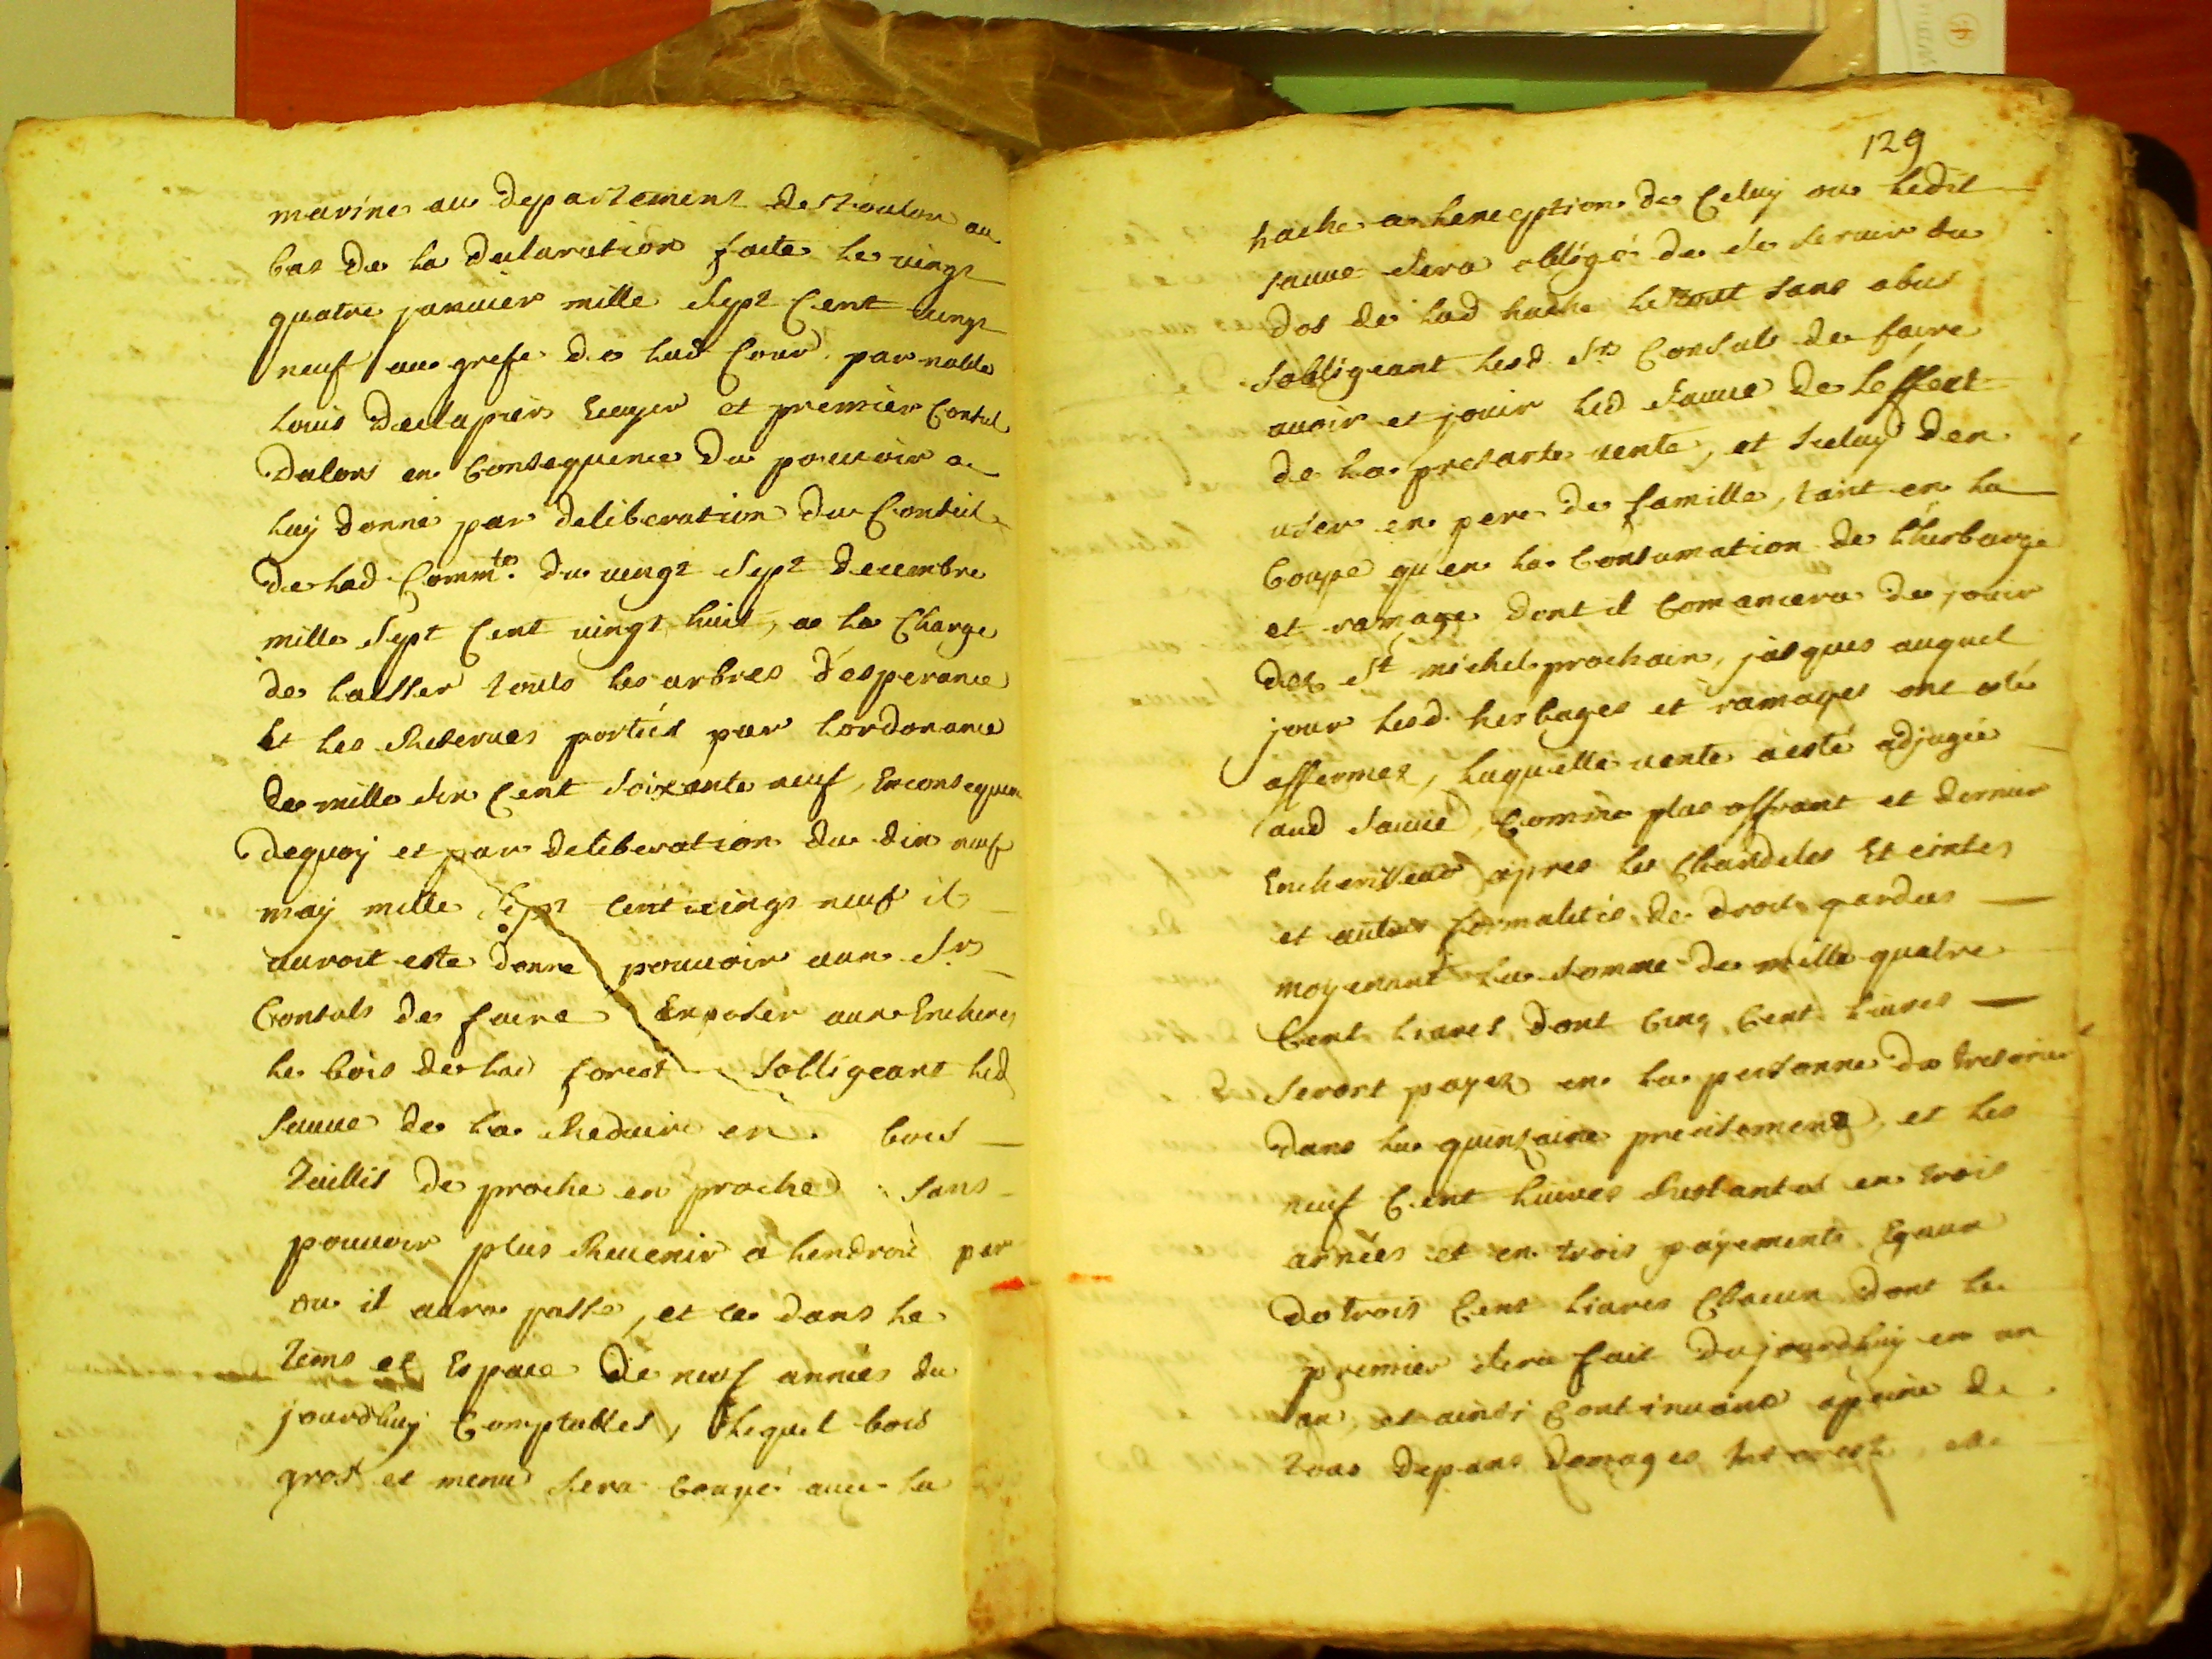 marine au departement de Toulon au
bas de la declaration faite le vingt
quatre janvier mille sept cent vingt
neuf au grefe de lad Cour par noble
Louis Declapiers Ecuyer et premier Consul
dalors en Consequence du pouvoir a
luy donné par deliberation du Conseil
de lad Commte. du vingt sept decembre
mille sept cent vingt huit, a la Charge
de laisser touts les arbres d'esperance
et les Reserves portées par lordonance
de mille six cent soixante neuf, En consequen
dequoy et par deliberation du dix neuf
may mille sept cent vingt neuf il
auroit esté donné pouvoir aux Srs
Consuls de faire Exposer aux Encheres
le bois de lad forest sobligeant led
sauve de la Reduire en bois
taillis de proche en proche sans
pouvoir plus Revenir a lendroit par
ou il aura passé, et ce dans le
tems et Espace de neuf années du
jourdhuy Comptables, Lequel bois
gros et menu sera Coupé avec la
129
hache a lexception de Celuy ou ledit
sauve sera obligé de se servir du
dos de lad hache le tout sans abus
sobligeant lesd. Srs Consuls de faire
avoir et jouir led sauve de leffect
de la presante vente, et Iceluy den
user en pere de famille, tant en la
Coupe qu'en la Consumation de lherbage
et ramage dont il Comancera de jouir
dez St michel prochain, jusques auquel
jour lesd. herbages et ramages ont été
affermez, laquelle vente a esté adjugée
aud sauve, Comme plus offrant et dernier
Encherisseur apres les Chandeles Eteintes
et autres formalités de droit gardées
moyenant la somme de mille quatre
Cent livres dont Cinq Cent livres
seront payez en la personne du tresorier
dans la quinzaine precisement, et les
neuf Cent livres Restantes en trois
années et en trois payements Egaux
de trois Cent livres Chacun dont le
premier sera fait dujourdhuy en un
an, et ainsi Continuant apeine de
tous depans domages Interests